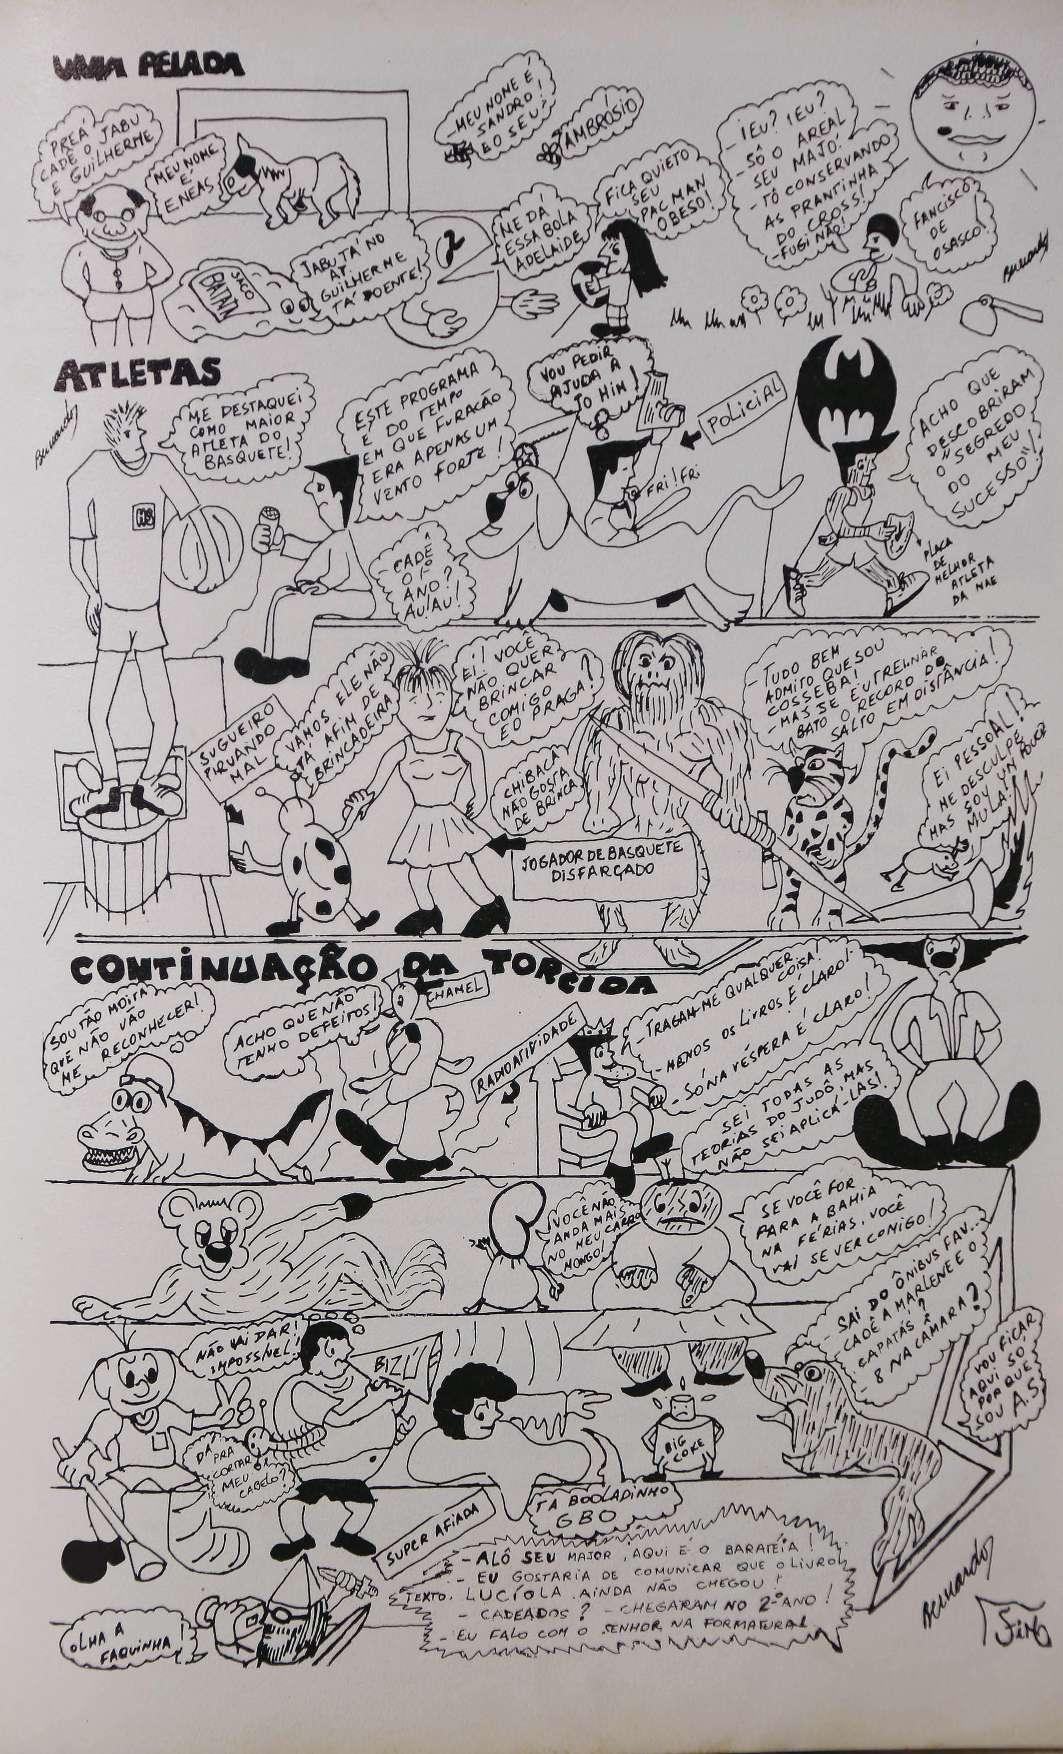 UMA PELADA
PREÁ
CADÊ O JABU
E GUILHERME
MEU NOME
E'
ENEAS
- MEU NOME É
SANDRO!
E O SEU?
AMBRÓSIO
- !EU? !EU?
- SÓ O AREAL
SEU MAJÓ!
- TÔ CONSERVANDO
AS PRANTINHA
DO CROSS!
- FUGI NÃO!
FANCISCO
DE
OSASCO!
FICA QUIETO
SEU
PAC MAN
OBESO!
ME DÁ
ESSA BOLA
ADELAIDE
2
JABU TÁ NO
AT.
GUILHERME
TÁ DOENTE!
SACO
BATAN
Bernardo
ATLETAS
Bernardo
ME DESTAQUEI
COMO MAIOR
ATLETA DO
BASQUETE!
ESTE PROGRAMA
E DO TEMPO
EM QUE FURACÃO
ERA APENAS UM
VENTO FORTE!
VOU PEDIR
AJUDA À
TO HIM!
POLICIAL
FRI! FRI
ACHO QUE
DESCOBRIRAM
O "SEGREDO
DO MEU
SUCESSO"!
- CADÊ
O 1º
ANO?
AU!AU!
PLACA
DE
MELHOR
ATLETA
DA MAE
SUGUEIRO
PIRUANDO
MAL
VAMOS, ELE NÃO
TÁ AFIM DE
BRINCADEIRA!
EI! VOCÊ
NÃO QUER
BRINCAR
COMIGO
EO PRAGA?
CHIBACA
NÃO GOSTA
DE BRINCA
JOGADOR DE BASQUETE
DISFARÇADO
- TUDO BEM
ADMITO QUE SOU
COSSEBA!
- MAS SE EU TREINAR
BATO O RECORD DO
SALTO EM DISTÂNCIA!
EI PESSOAL!
ME DESCULPE
MAS SOU UM POUCO
MULA!
CONTINUAÇÃO DA TORCIDA
SOU TÃO MOITA
QUE NÃO VÃO
ME RECONHECER!
ACHO QUE NÃO
TENHO DEFEITOS!
CHAMEL
RADIOATIVIDADE
- TRAGAM-ME QUALQUER
COISA!
- MENOS OS LIVROS É CLARO!
- SÓ NA VÉSPERA É CLARO!
SEI TODAS AS
TEORIAS DO JUDÔ, MAS
NÃO SEI APLICÁ-LAS!
VOCÊ NÃO
ANDA MAIS
NO MEU CARRO
MONGO!
SE VOCÊ FOR
PARA A BAHIA
NA FÉRIAS, VOCÊ
VAI SE VER CONIGO!
- SAI DO ÔNIBUS FAV...
CADÊ A MARLENE E O
CAPATÁS?
8 NA CÂMARA?
VOU FICAR
AQUI SÓ
POR QUE
SOU A.S!
NÃO VAI DAR!
IMPOSSÍNEL!
BIZU
DÁ PRA
CORTAR
MEU
CABELO?
BIG
COKE
SUPER AFIADA
TÁ BOOLADINHO
GBO
- ALÔ SEU MAJOR, AQUI É O BARATÉIA!
- EU GOSTARIA DE COMUNICAR QUE O LIVRO
TEXTO, LUCÍOLA AINDA NÃO CHEGOU!
- CADEADOS? - CHEGARAM NO 2º ANO!
- EU FALO COM O SENHOR NA FORMATURA!
OLHA A
FAQUINHA!
Bernardo
FIM